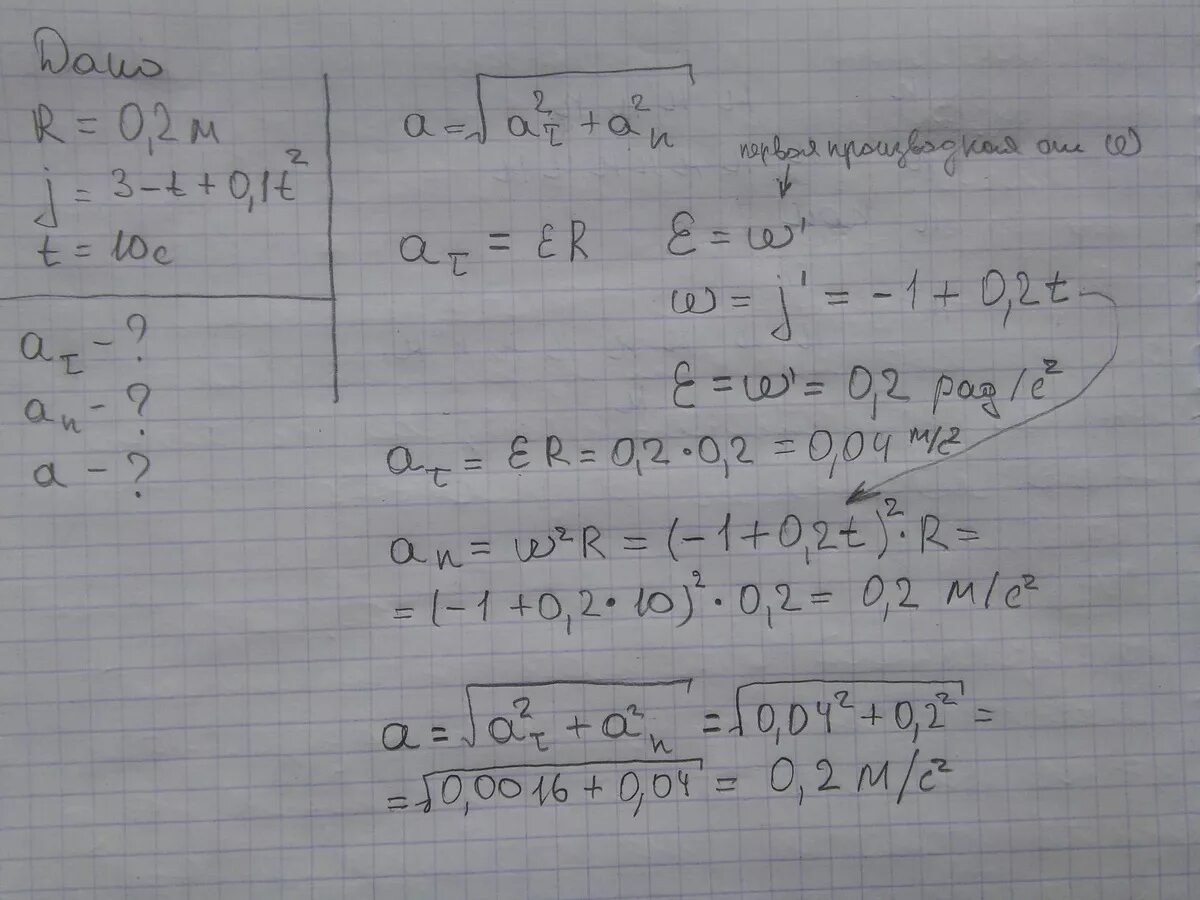 Дано
R = 0,2 м
j = 3 - t + 0,1t²
t = 10с
a_τ - ?
a_n - ?
a - ?
a = √(a²_τ + a²_n)
первая производная от ω
↓
a_τ = εR ε = ω'
ω = j' = -1 + 0,2t
ε = ω' = 0,2 рад/с²
a_τ = εR = 0,2 · 0,2 = 0,04 м/с²
a_n = ω²R = (-1 + 0,2t)² · R =
= (-1 + 0,2 · 10)² · 0,2 = 0,2 м/с²
a = √(a²_τ + a²_n) = √(0,04² + 0,2²) =
= √(0,0016 + 0,04) = 0,2 м/с²